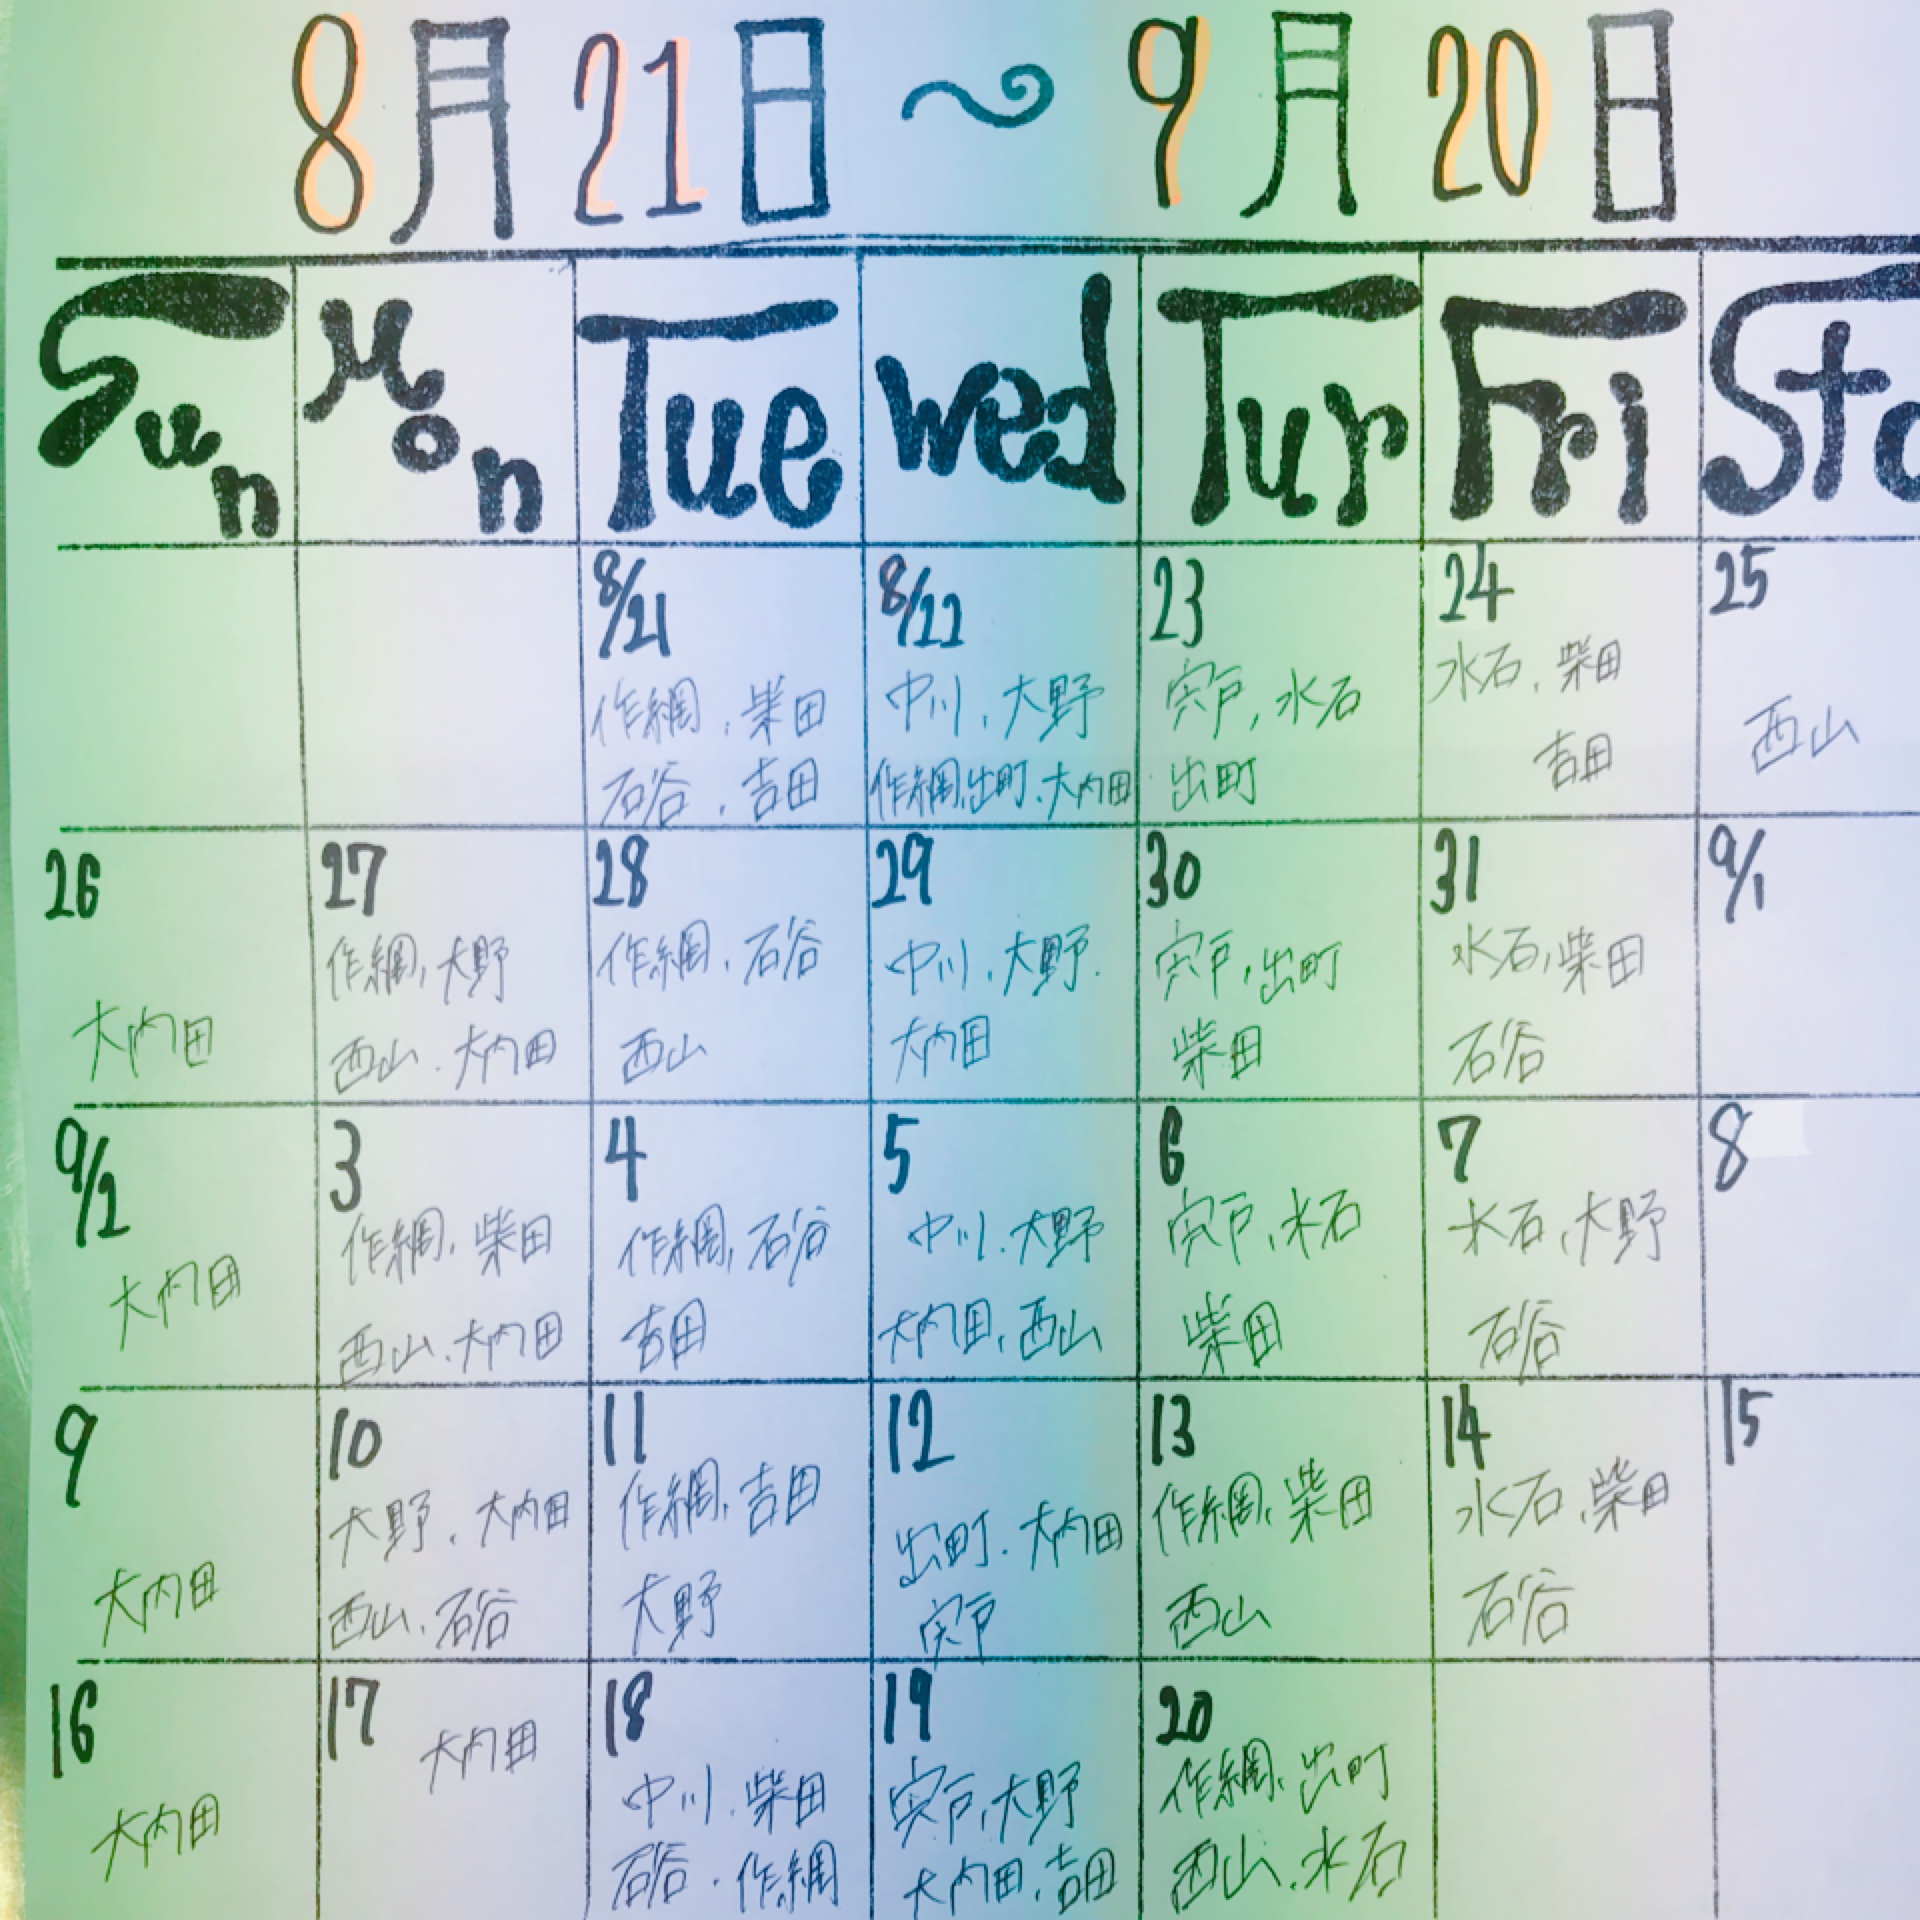 8月21日～9月20日
Sun Mon Tue Wed Tur Fri
8/21 8/22 23 24 25
作綱、柴田 中川、大野 宍戸、水石 水石、柴田
石谷、吉田 作綱、出町、大内田 出町 吉田 西山
26 27 28 29 30 31 9/1
作綱、大野 作綱、石谷 中川、大野 宍戸、出町 水石、柴田
大内田 西山、大内田 西山 大内田 柴田 石谷
9/2 3 4 5 6 7 8
作綱、柴田 作綱、石谷 中川、大野 宍戸、水石 水石、大野
大内田 西山、大内田 吉田 大内田、西山 柴田 石谷
9 10 11 12 13 14 15
大野、大内田 作綱、吉田 出町、大内田 作綱、柴田 水石、柴田
大内田 西山、石谷 大野 宍戸 西山 石谷
16 17 18 19 20
大内田 中川、柴田 宍戸、大野 作綱、出町
大内田 石谷、作綱 大内田、吉田 西山、水石